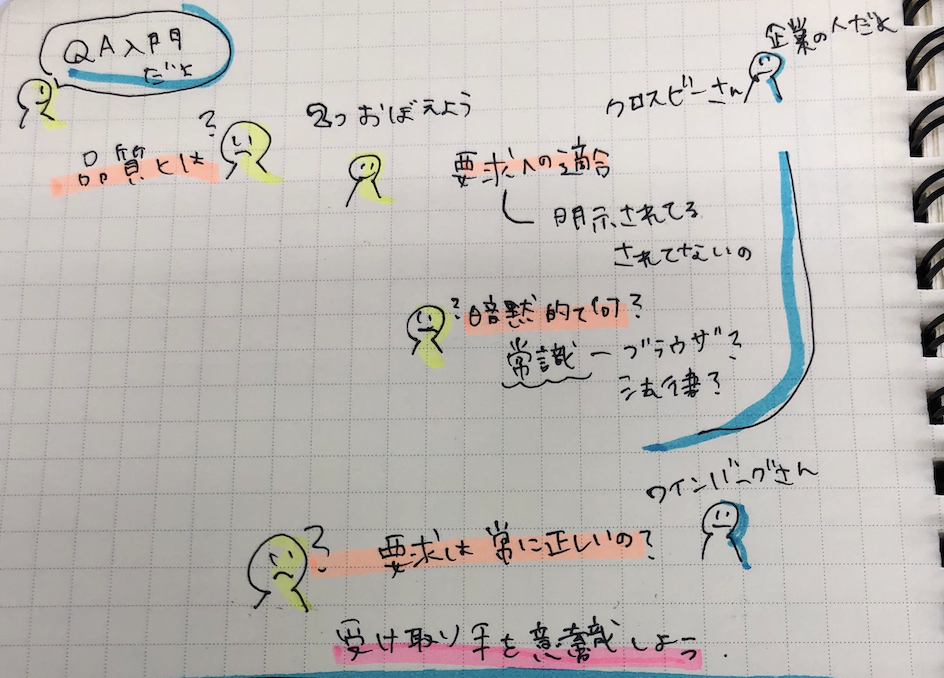 QA入門
だよ
企業の人だよ
クロスビーさん
2つおぼえよう
?
品質とは
要求への適合
明示されてる
されてないの
? 暗黙的て何?
常識ーブラウザ?
法律?
ワインバーグさん
? 要求は常に正しいの?
受け取り手を意識しよう.